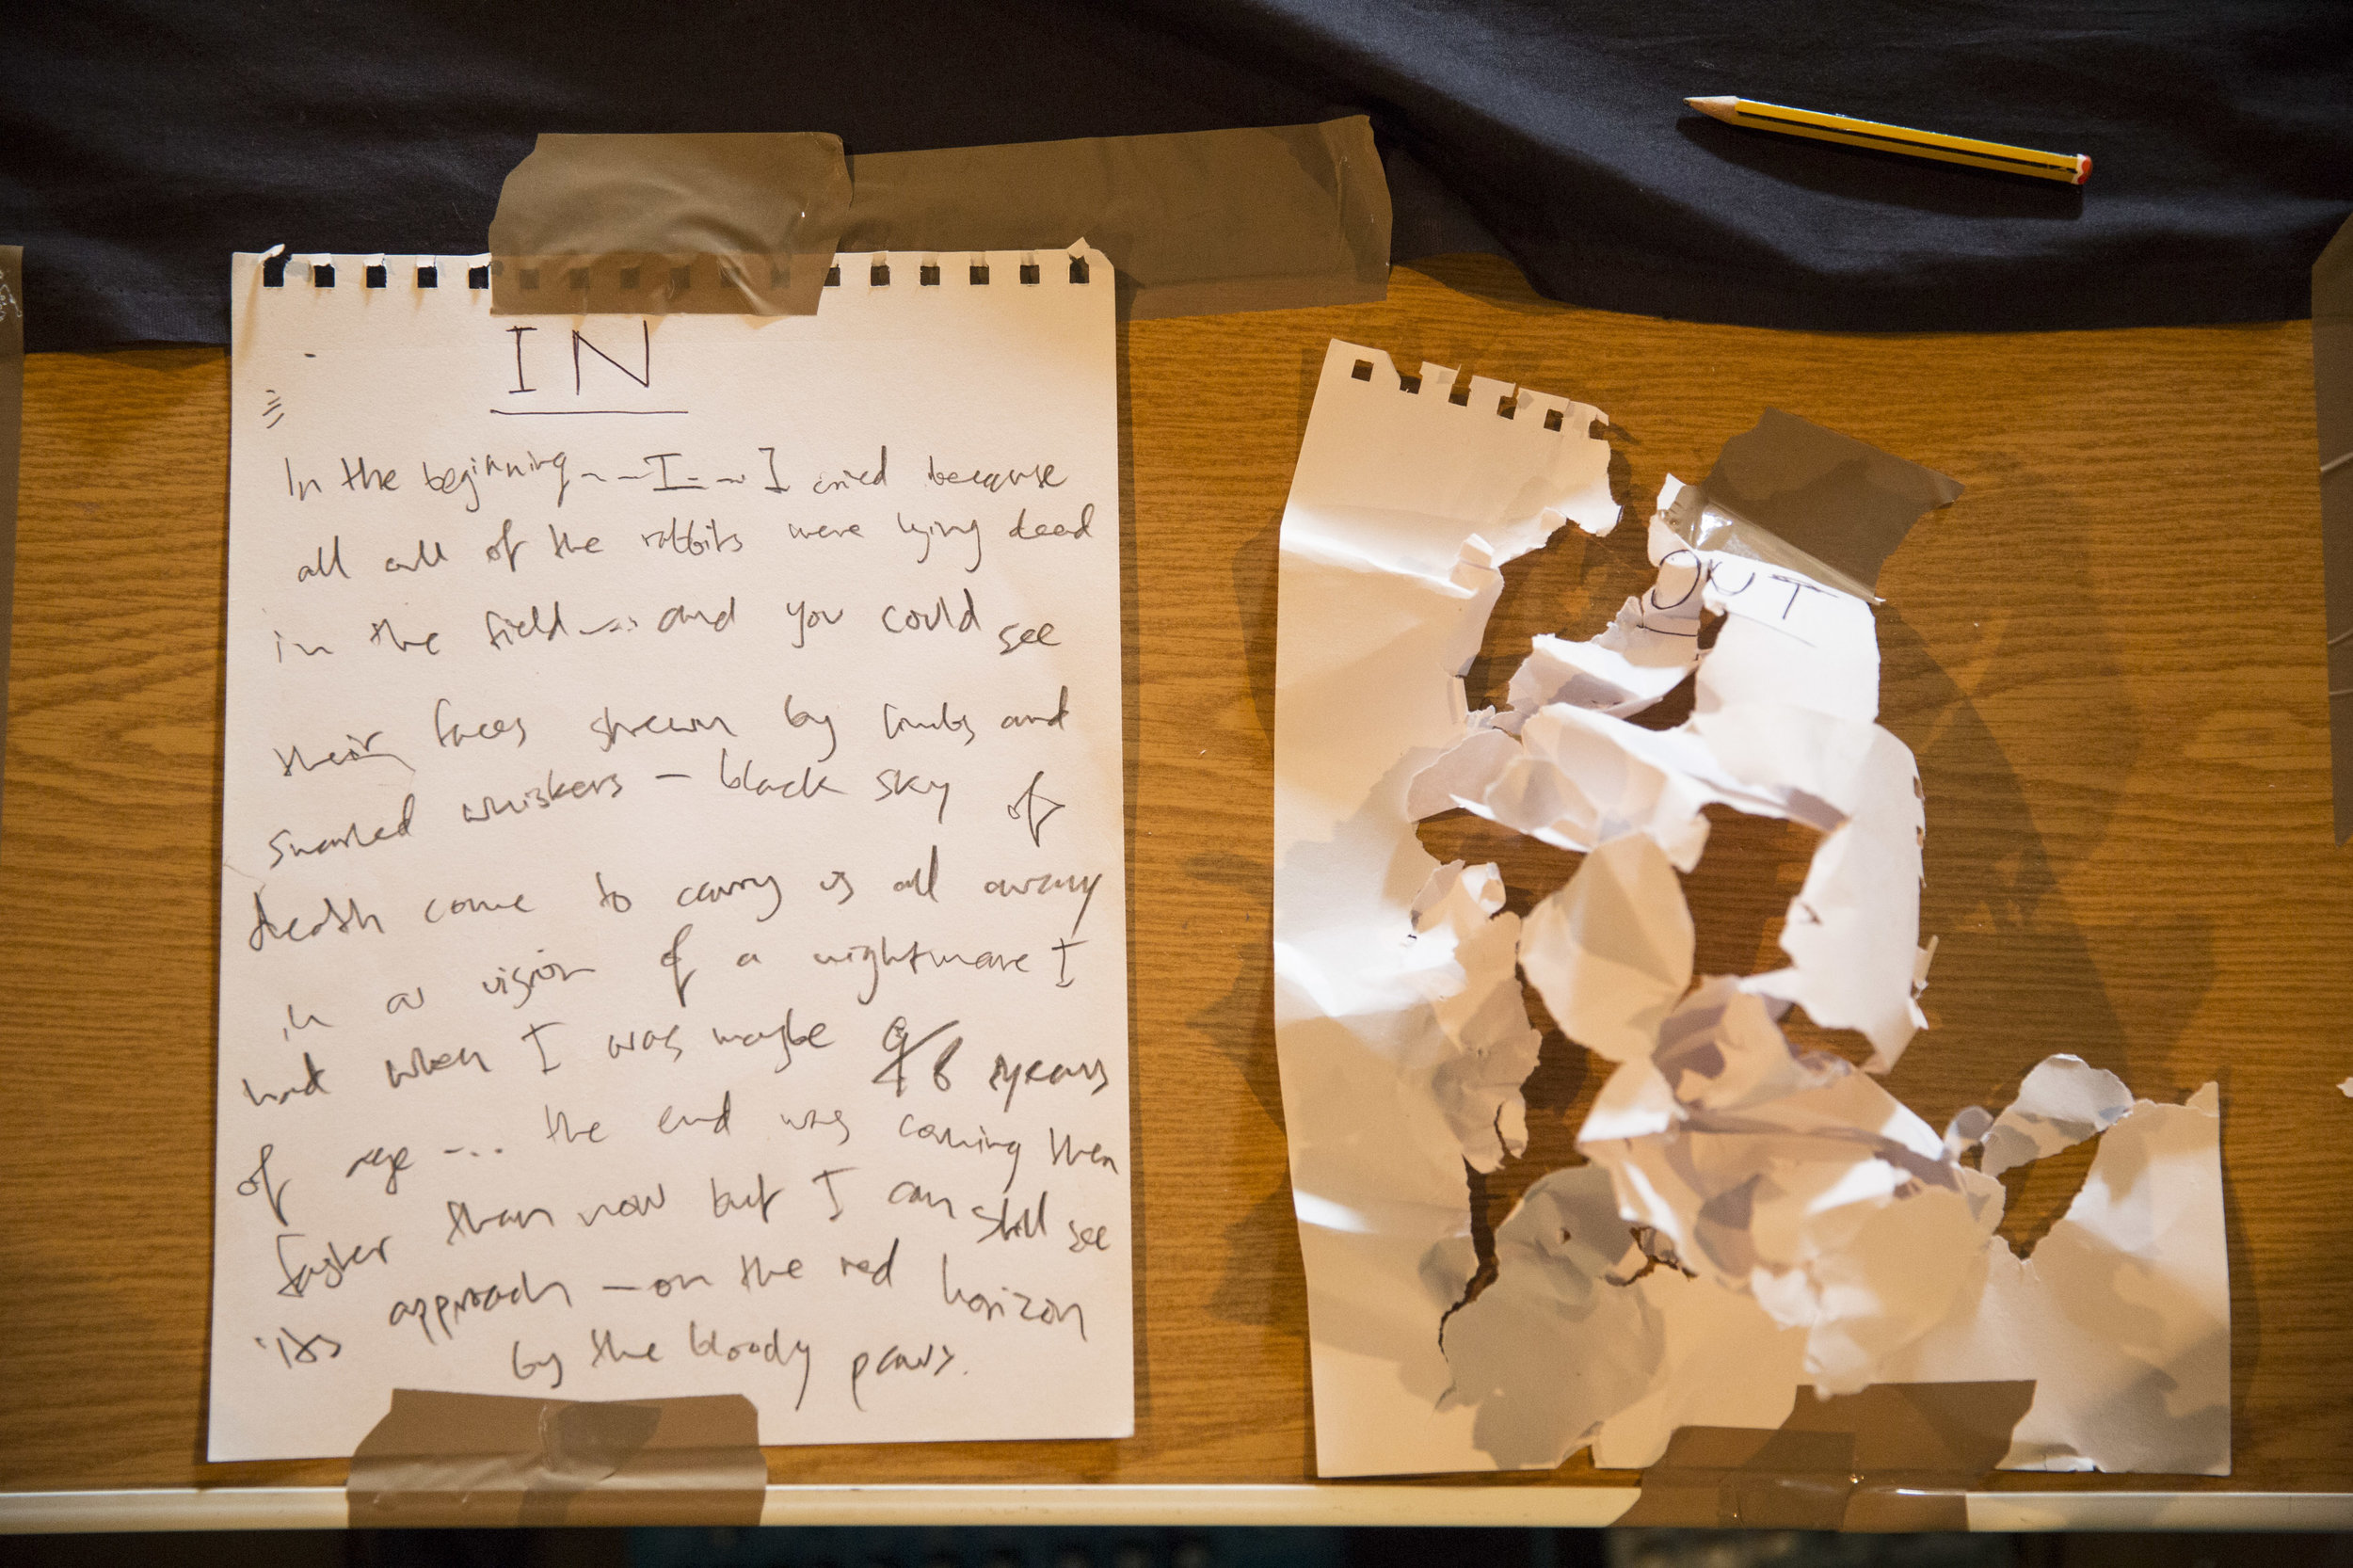 IN
In the beginning - - - I - - I cried because
all all of the rabbits were lying dead
in the field .... and you could see
their faces strewn by limbs and
snarled whiskers - black sky of
death come to carry us all away
in a vision of a nightmare I
had when I was maybe 9/8 years
of age .... the end was coming then
faster than now but I can still see
its approach - on the red horizon
by the bloody paws.
OUT